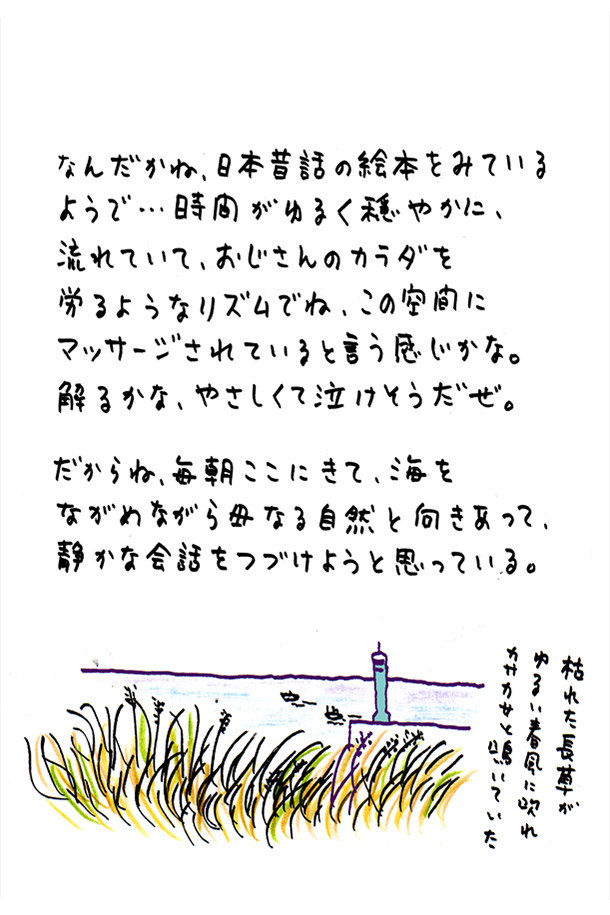 なんだかね、日本昔話の絵本をみている
ようで…時間がゆるく穏やかに、
流れていて、おじさんのカラダを
労るようなリズムでね、この空間に
マッサージされていると言う感じかな。
解るかな、やさしくて泣けそうだぜ。
だからね、毎朝ここにきて、海を
ながめながら母なる自然と向きあって、
静かな会話をつづけようと思っている。
枯れた長草が
ゆるい春風に吹れ
カサカサと鳴いていた